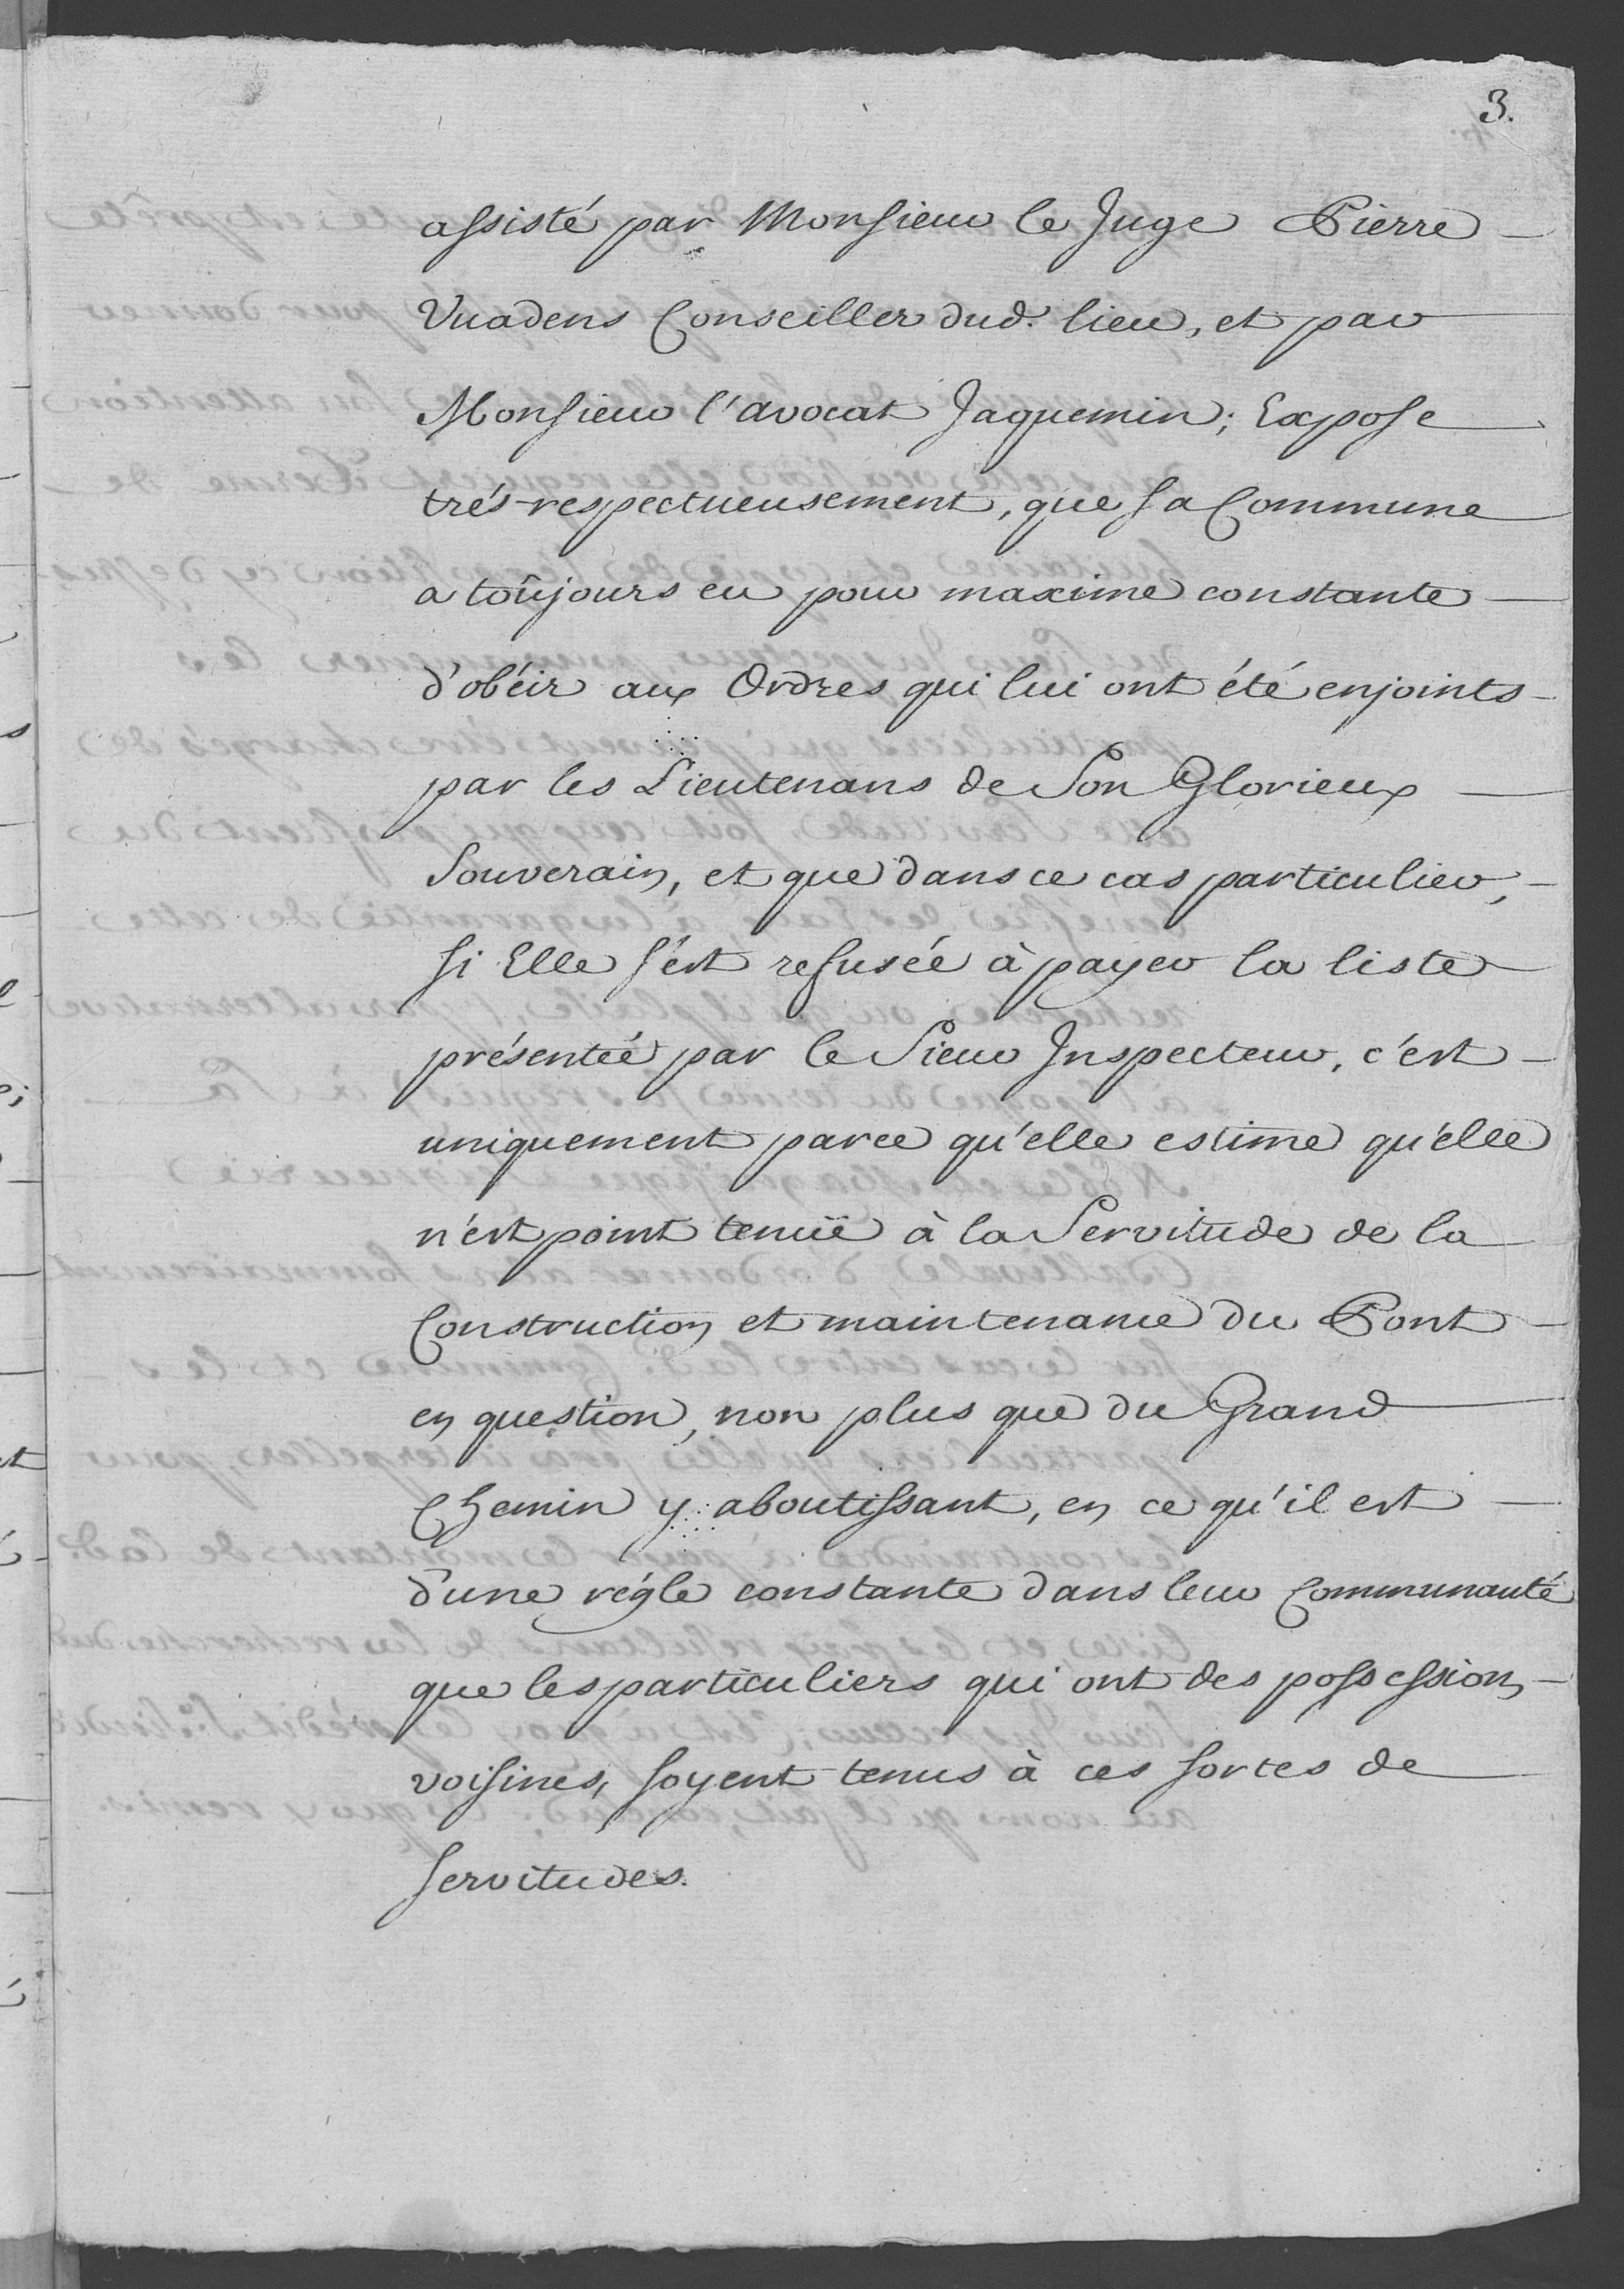 3.
assisté par Monsieur le Juge Pierre
Vuadens Conseiller dud. lieu, et par
Monsieur l'avocat Jaquemin; Expose
trés-respectueusement, que sa Commune
a toûjours eu pour maxime constante
d'obéir aux Ordres qui lui ont été enjoints
par les Lieutenans de Son Glorieux
Souverain, et que dans ce cas particulier,
si Elle s'est refusée à payer la liste
présentée par le Sieur Inspecteur, c'est
uniquement parce qu'elle estime qu'elle
n'est point tenüe à la Servitude de la
Construction et maintenance du Pont
en question, non plus que du Grand
Chemin y aboutissant, en ce qu'il est
d'une régle constante dans leur Communauté
que les particuliers qui ont des possessions
voisines, soyent tenus à ces sortes de
servitudes.